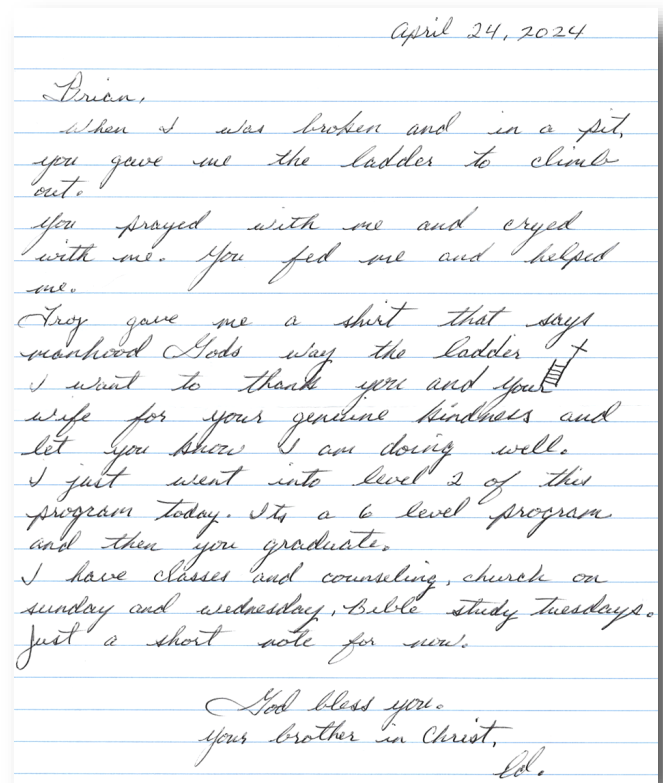 April 24, 2024
Brian,
When I was broken and in a pit,
you gave me the ladder to climb
out.
You prayed with me and cryed
with me. You fed me and helped
me.
Troy gave me a shirt that says
manhood Gods way the ladder
I want to thank you and your
wife for your genuine kindness and
let you know I am doing well.
I just went into level 2 of this
program today. Its a 6 level program
and then you graduate.
I have classes and counseling, church on
sunday and wednesday, Bible study tuesdays.
Just a short note for now.
God bless you.
Your brother in Christ,
Ed.